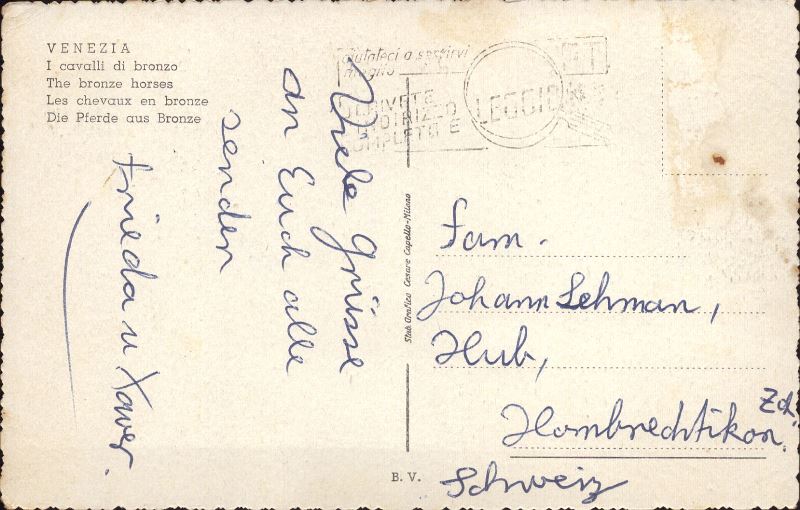 VENEZIA
I cavalli di bronzo
The bronze horses
Les chevaux en bronze
Die Pferde aus Bronze
aiutateci a servirvi
meglio
SCRIVETE
INDIRIZZO
COMPLETO E
LEGGIBILE
Viele Grüsse
an Euch alle
senden
Frieda u Xaver.
Stab. Grafico Cesare Capello-Milano
Fam.
Johann Lehman,
Hub,
Hombrechtikon
Zch.
Schweiz
B. V.